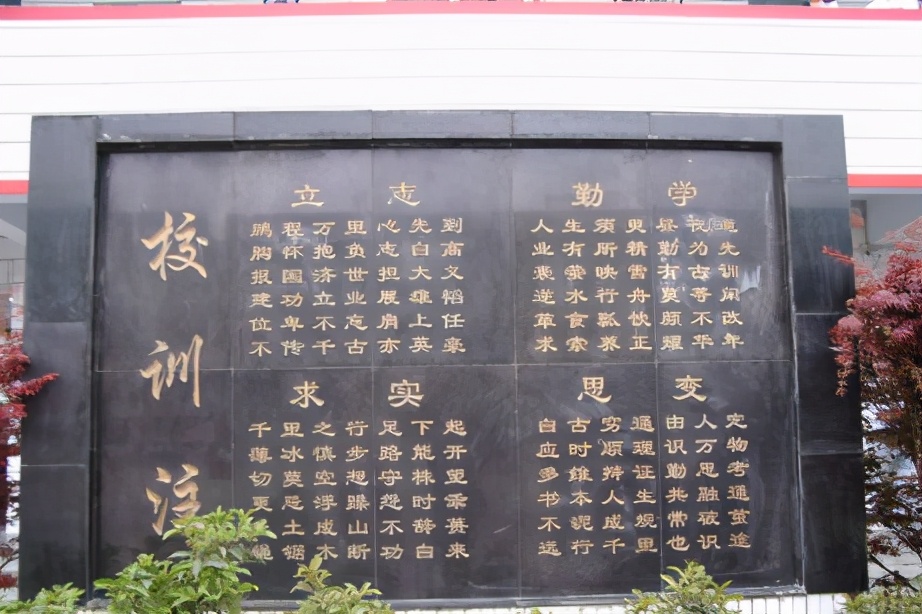 校训注
立志
鹏程万里心先到
胸怀抱负志自高
报国济世担大义
建功立业展雄韬
位卑不忘肩上任
不传千古亦英豪
勤学
人生须臾
业有所精勤为先
囊萤映雪有古训
逆水行舟莫等闲
箪食瓢饮颜不改
求索养正耀华年
求实
千里之行足下起
薄冰慎步路能开
切莫空想守株望
更忌浮躁怨时乖
土成山不辞蒉
绳锯木断功自来
思变
自古穷通由人定
应时顺理识万物
多维辩证勤思考
书本人生共融通
不泥成规常破茧
远行千里也识途